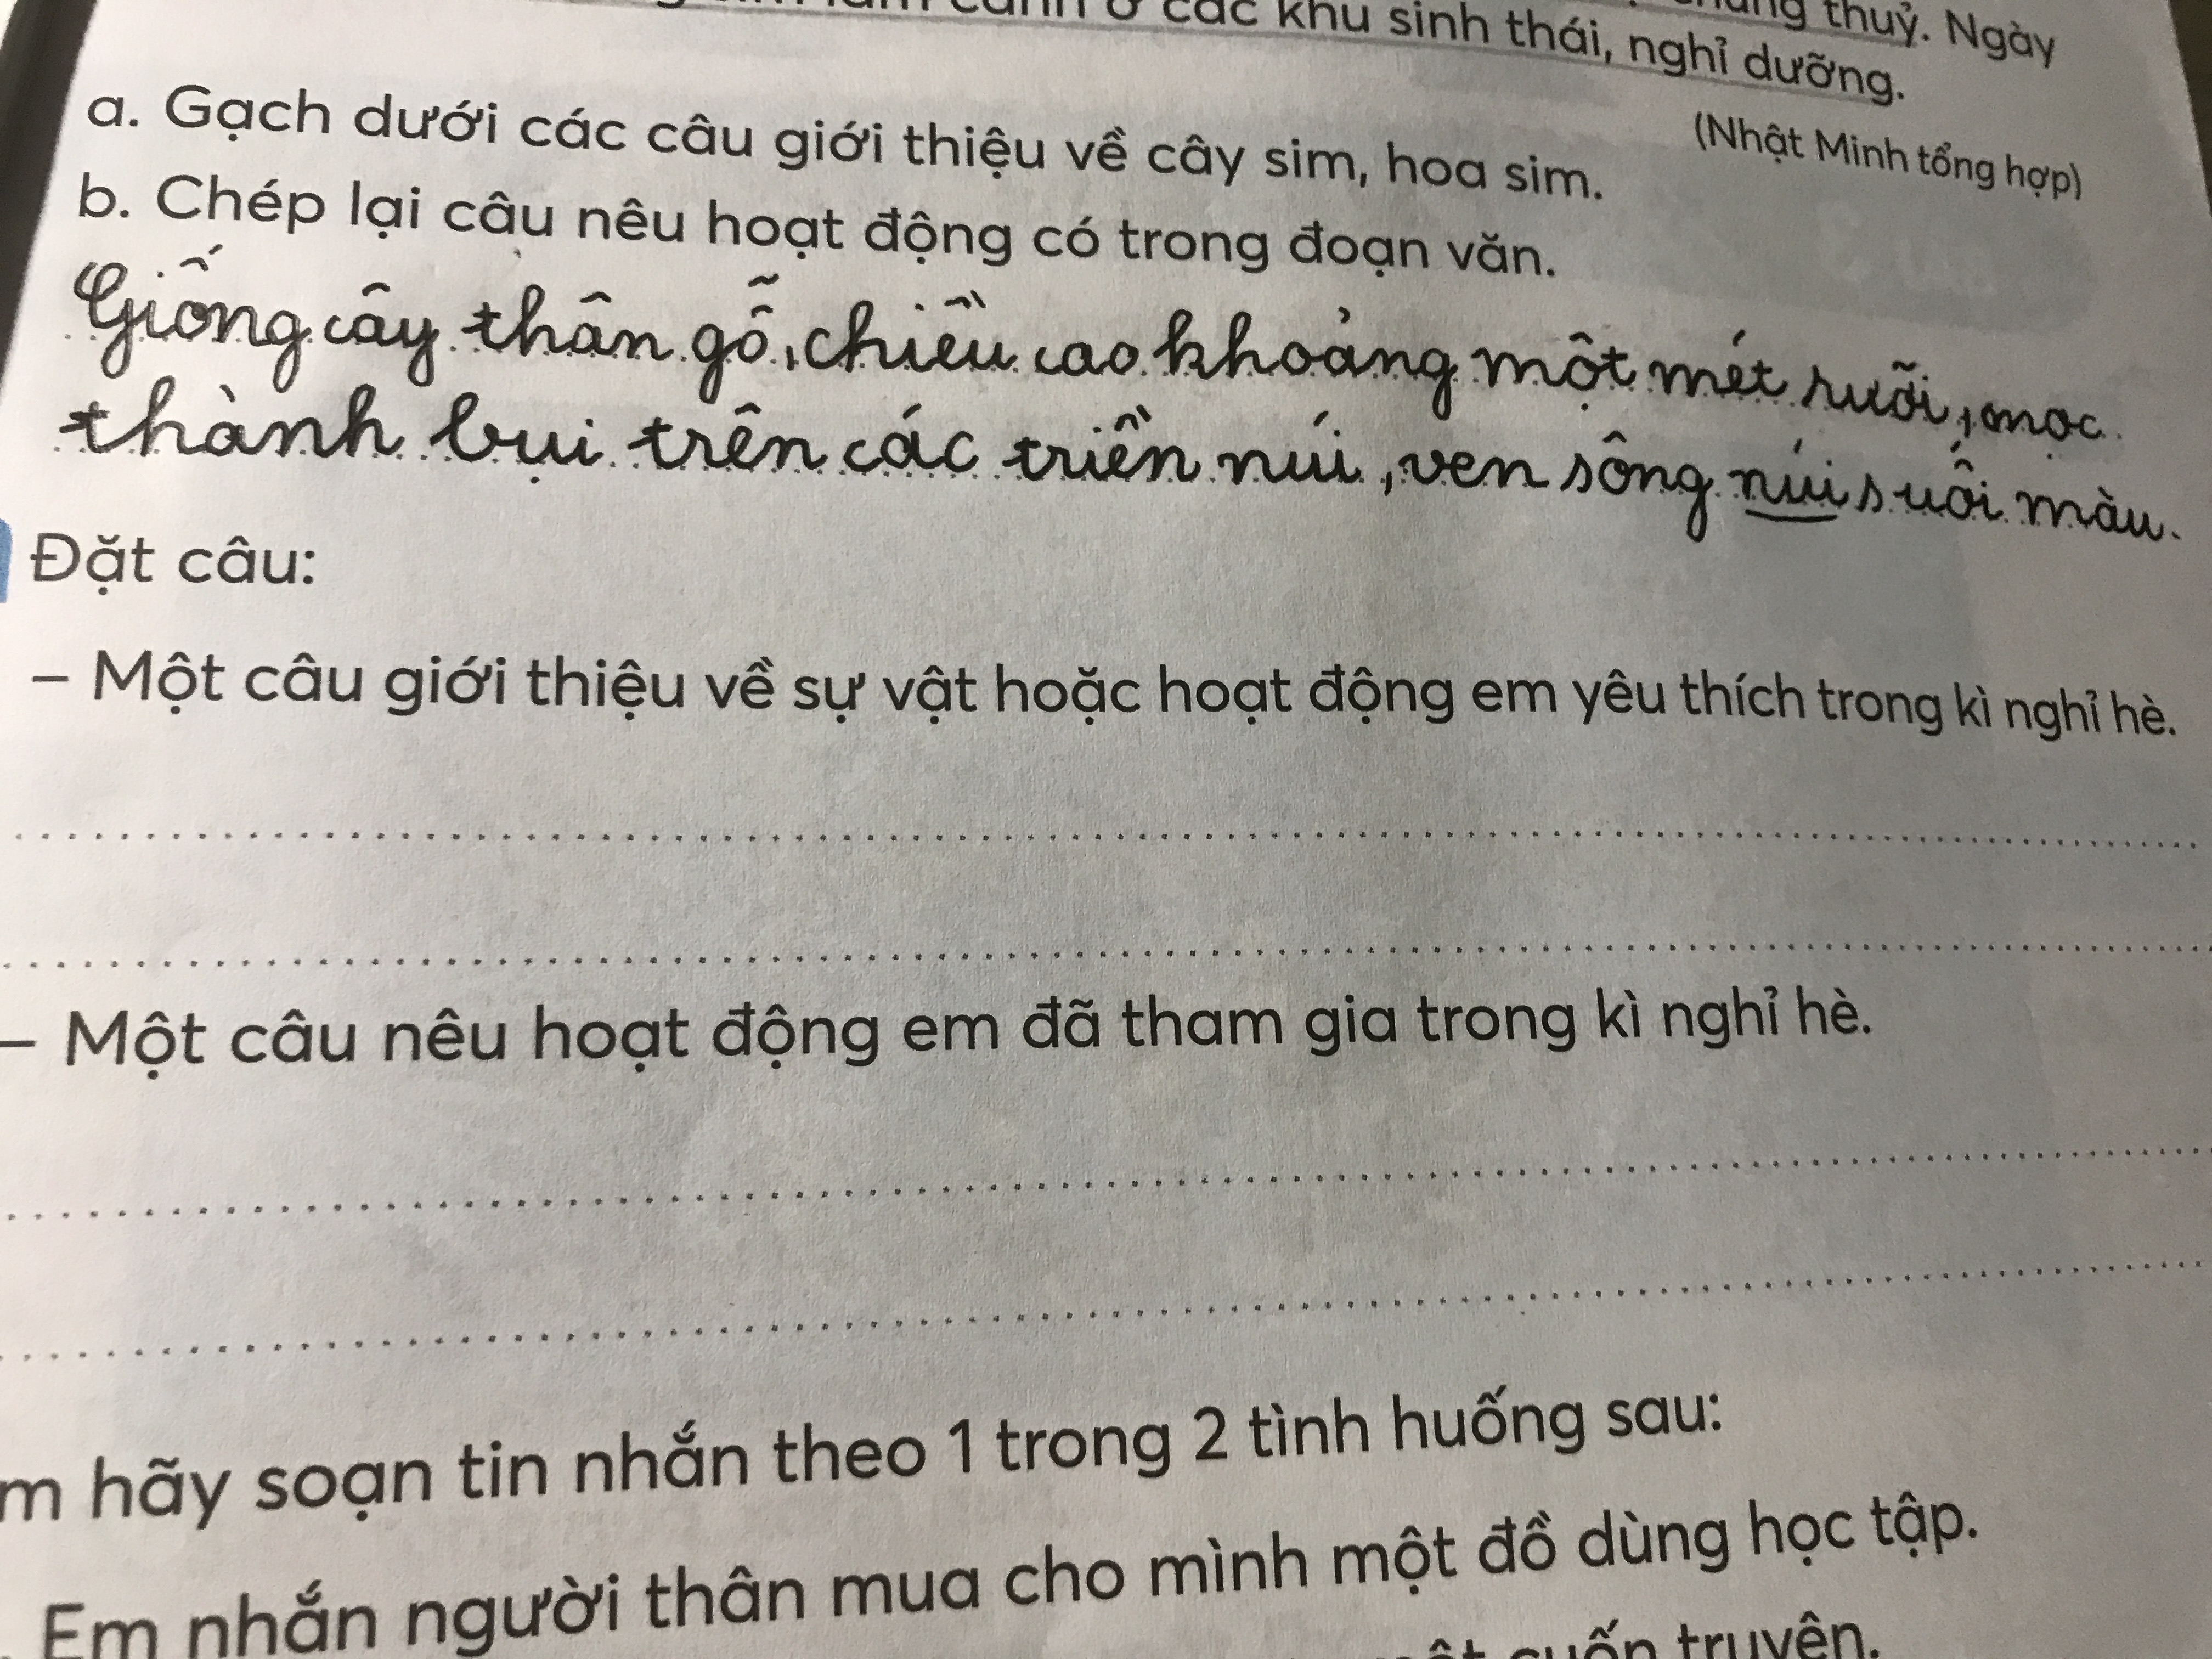 cảnh ở các khu sinh thái, nghỉ dưỡng. thuỷ. Ngày
(Nhật Minh tổng hợp)
a. Gạch dưới các câu giới thiệu về cây sim, hoa sim.
b. Chép lại câu nêu hoạt động có trong đoạn văn.
Giống cây thân gỗ, chiều cao khoảng một mét rưỡi, mọc
thành bụi trên các triền núi, ven sông núi suối màu.
Đặt câu:
– Một câu giới thiệu về sự vật hoặc hoạt động em yêu thích trong kì nghỉ hè.
– Một câu nêu hoạt động em đã tham gia trong kì nghỉ hè.
hãy soạn tin nhắn theo 1 trong 2 tình huống sau:
Em nhắn người thân mua cho mình một đồ dùng học tập.
cuốn truyện.